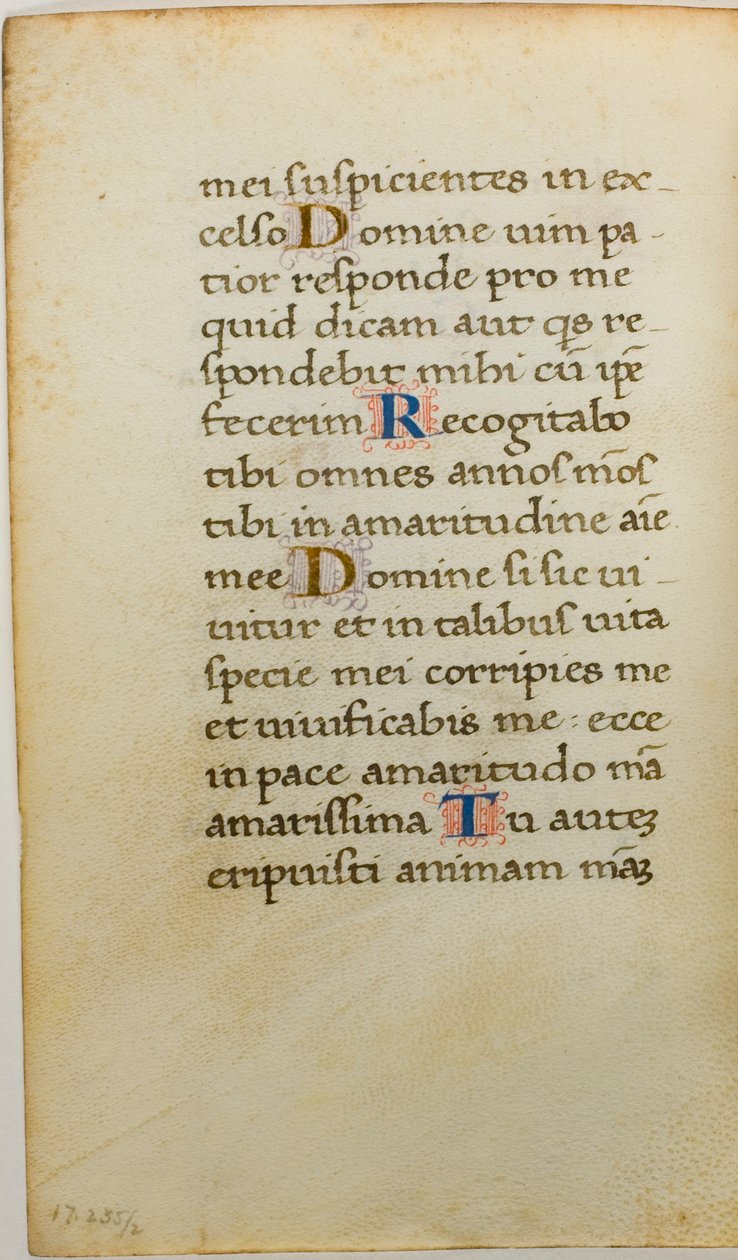 mei suspicientes in ex-
celso Domine uim pa-
tior responde pro me
quid dicam aut qs re-
spondebit mihi cū ipē
fecerim Recogitabo
tibi omnes annos mōs
tibi in amaritudine aīe
mee Domine si sic ui-
uitur et in talibus uita
specie mei corripies me
et uiuificabis me : ecce
in pace amaritudo mā
amarissima Tu auteꝫ
eripuisti animam māꝫ
17.235/2